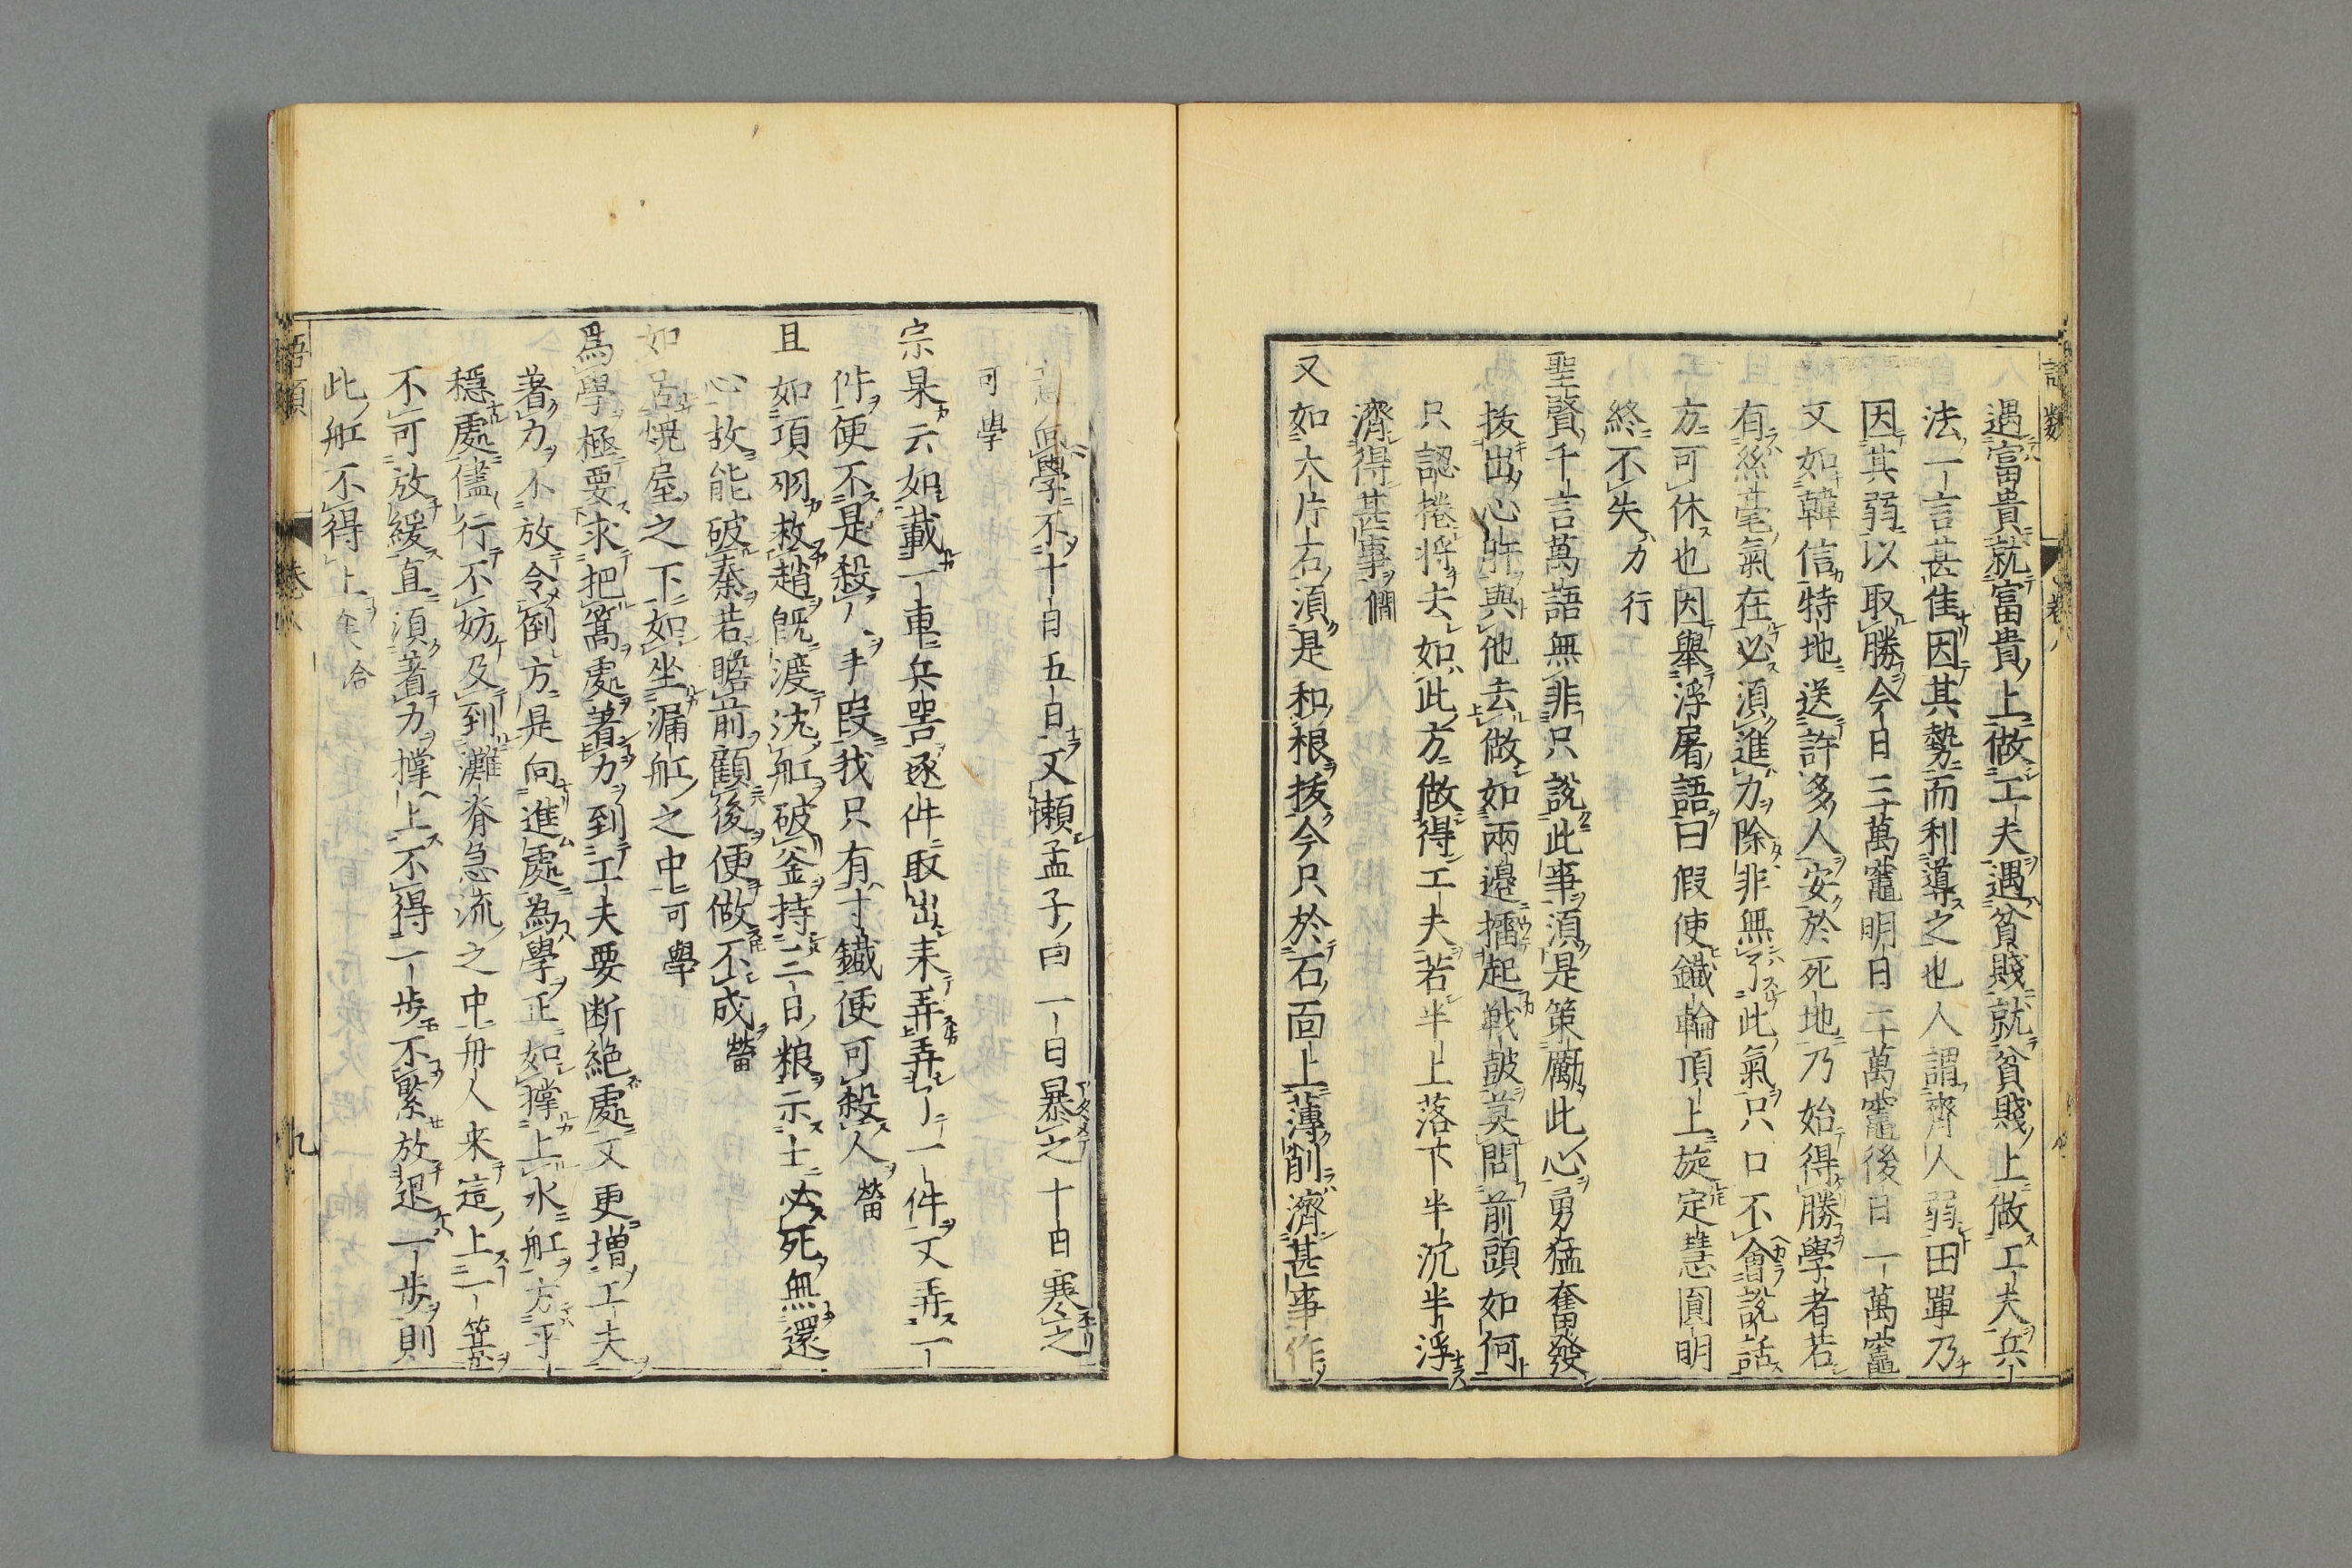 遇富貴就富貴上做工夫遇貧賤就貧賤上做工夫兵
法一言甚佳因其勢而利導之也人謂齊人弱田單乃
因其弱以取勝今日三萬竈明日二萬竈後日一萬竈
又如韓信特地送許多人安於死地乃始得勝學者若
有絲毫氣在必須進力除非無了此氣只口不會說話
方可休也因舉浮屠語曰假使鐵輪頂上旋定慧圓明
終不失力行
聖賢千言萬語無非只說此事須是策勵此心勇猛奮發
拔出心肝與他去做如兩邊擂起戰鼓莫問前頭如何
只認捲將去如此方做得工夫若半上落下半沉半浮
濟得甚事僩
又如大片石須是和根拔今只於石面上薄削濟甚事作
意向學不十日五日又懶孟子曰一日暴之十日寒之
可學
宗杲云如載一車兵器逐件取出來弄弄了一件又弄一
件便不是殺人手段我只有寸鐵便可殺人𦺇
且如項羽救趙既渡沈舡破釜持三日粮示士必死無還
心故能破秦若瞻前顧後便做不成𦺇
如居燒屋之下如坐漏舡之中可學
為學極要求把篙處著力到工夫要断絶處又更增工夫
著力不放令倒方是向進處為學正如撑上水舡方平
穩處儘行不妨及到灘脊急流之中舟人來這上一篙
不可放緩直須著力撑上不得一步不緊放退一步則
此舡不得上矣洽
語類
卷八
九